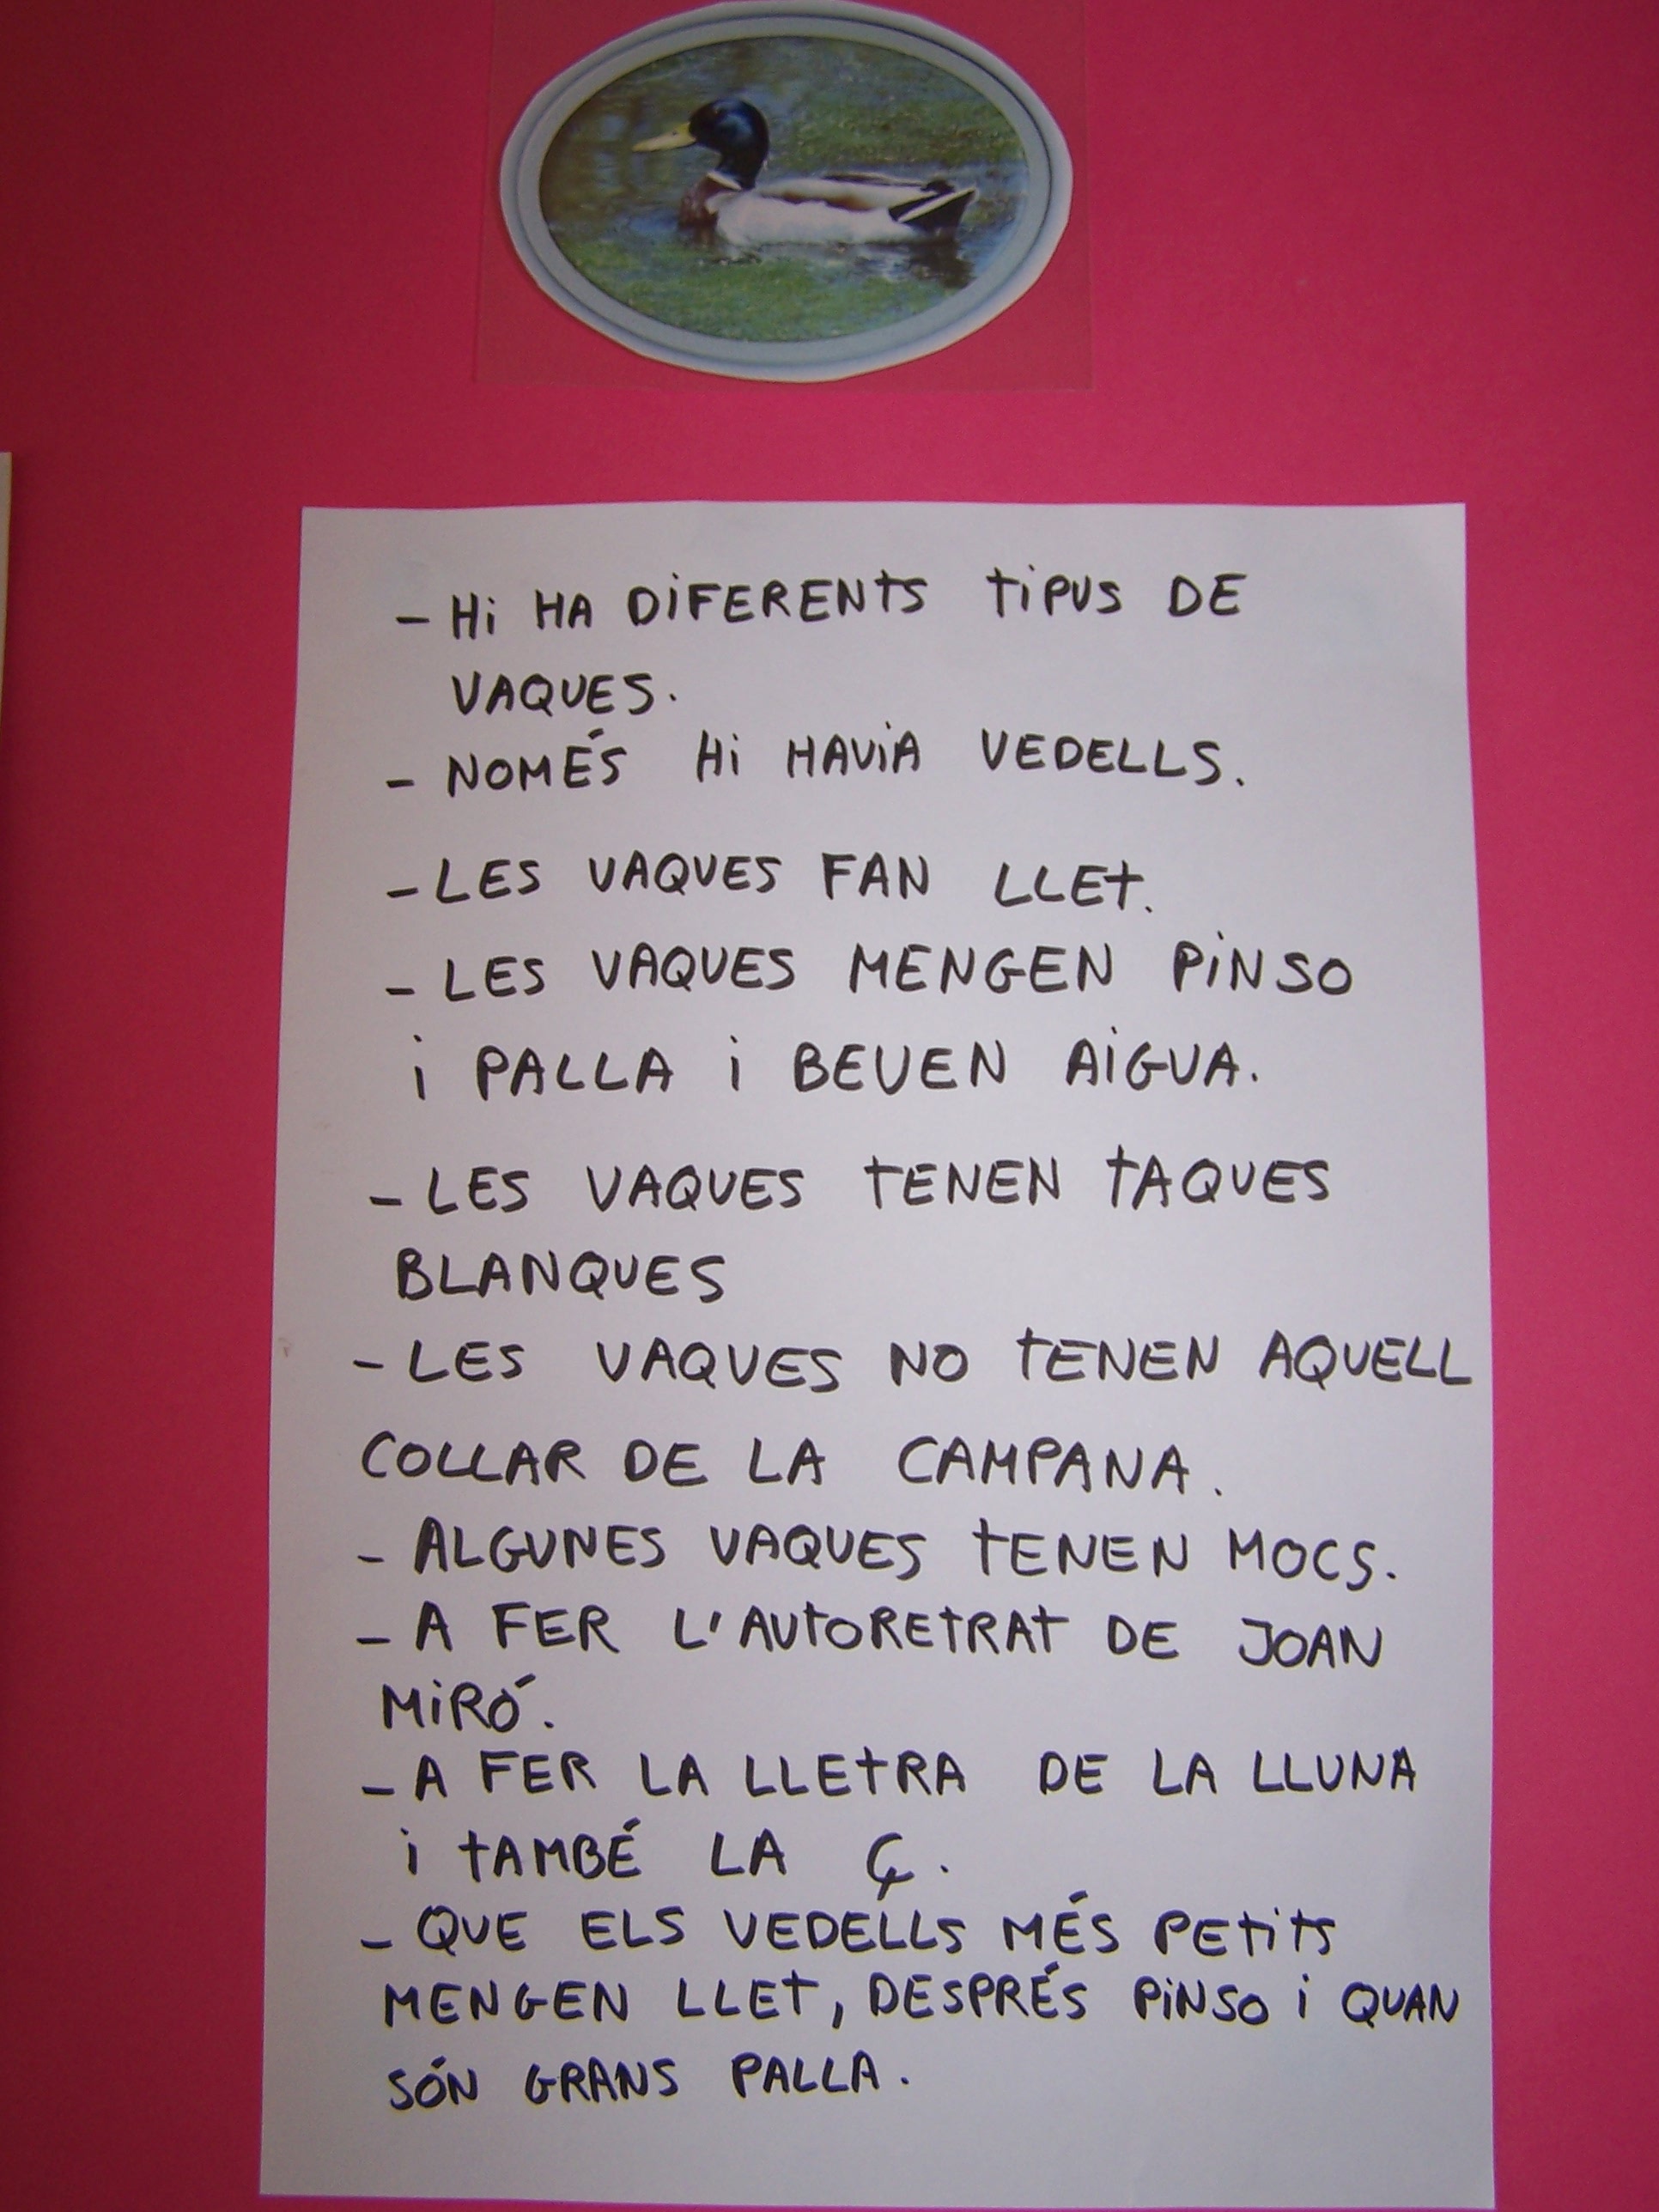 - Hi HA DiFERENTS TiPUS DE
VAQUES.
- NOMÉS Hi HAViA VEDELLS.
- LES VAQUES FAN LLET.
- LES VAQUES MENGEN PiNSO
i PALLA i BEUEN AiGUA.
- LES VAQUES TENEN TAQUES
BLANQUES
- LES VAQUES NO TENEN AQUELL
COLLAR DE LA CAMPANA.
- ALGUNES VAQUES TENEN MOCS.
- A FER L'AUTORETRAT DE JOAN
MiRÓ.
- A FER LA LLETRA DE LA LLUNA
i TAMBÉ LA Ç.
- QUE ELS VEDELLS MÉS PETiTS
MENGEN LLET, DESPRÉS PiNSO i QUAN
SÓN GRANS PALLA.